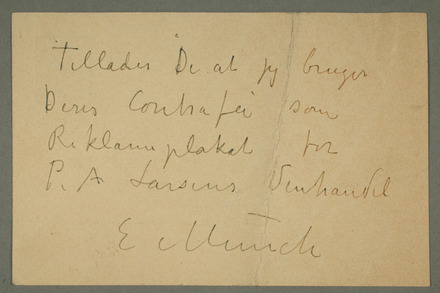 Tillader De at jeg bruger
Deres Contrafei som
Reklameplakat for
P. A. Larsens Vinhandel
E Munch